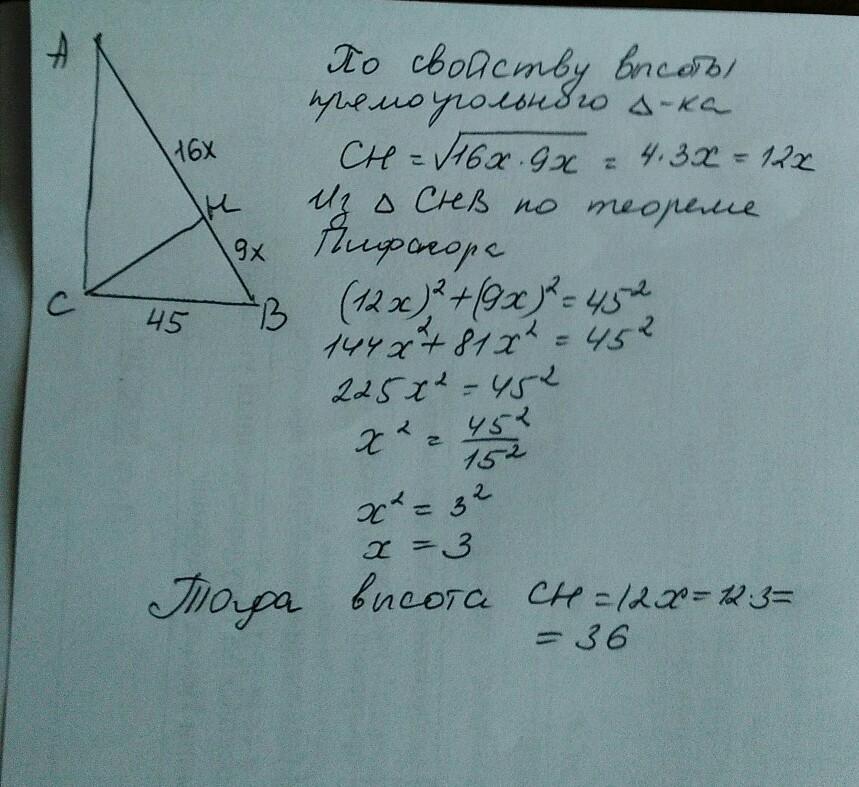 A
16x
H
9x
C
45
B
По свойству высоты
прямоугольного Δ-ка
CH = √16x · 9x = 4·3x = 12x
Из Δ CHB по теореме
Пифагора
(12x)² + (9x)² = 45²
144x² + 81x² = 45²
225x² = 45²
x² = 45²/15²
x² = 3²
x = 3
Тогда высота CH = 12x = 12·3 =
= 36